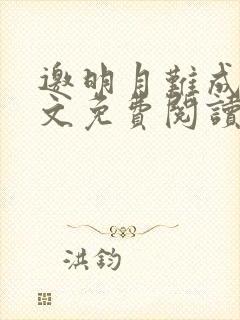 邀明月難成
文免費閱讀
洪鈞